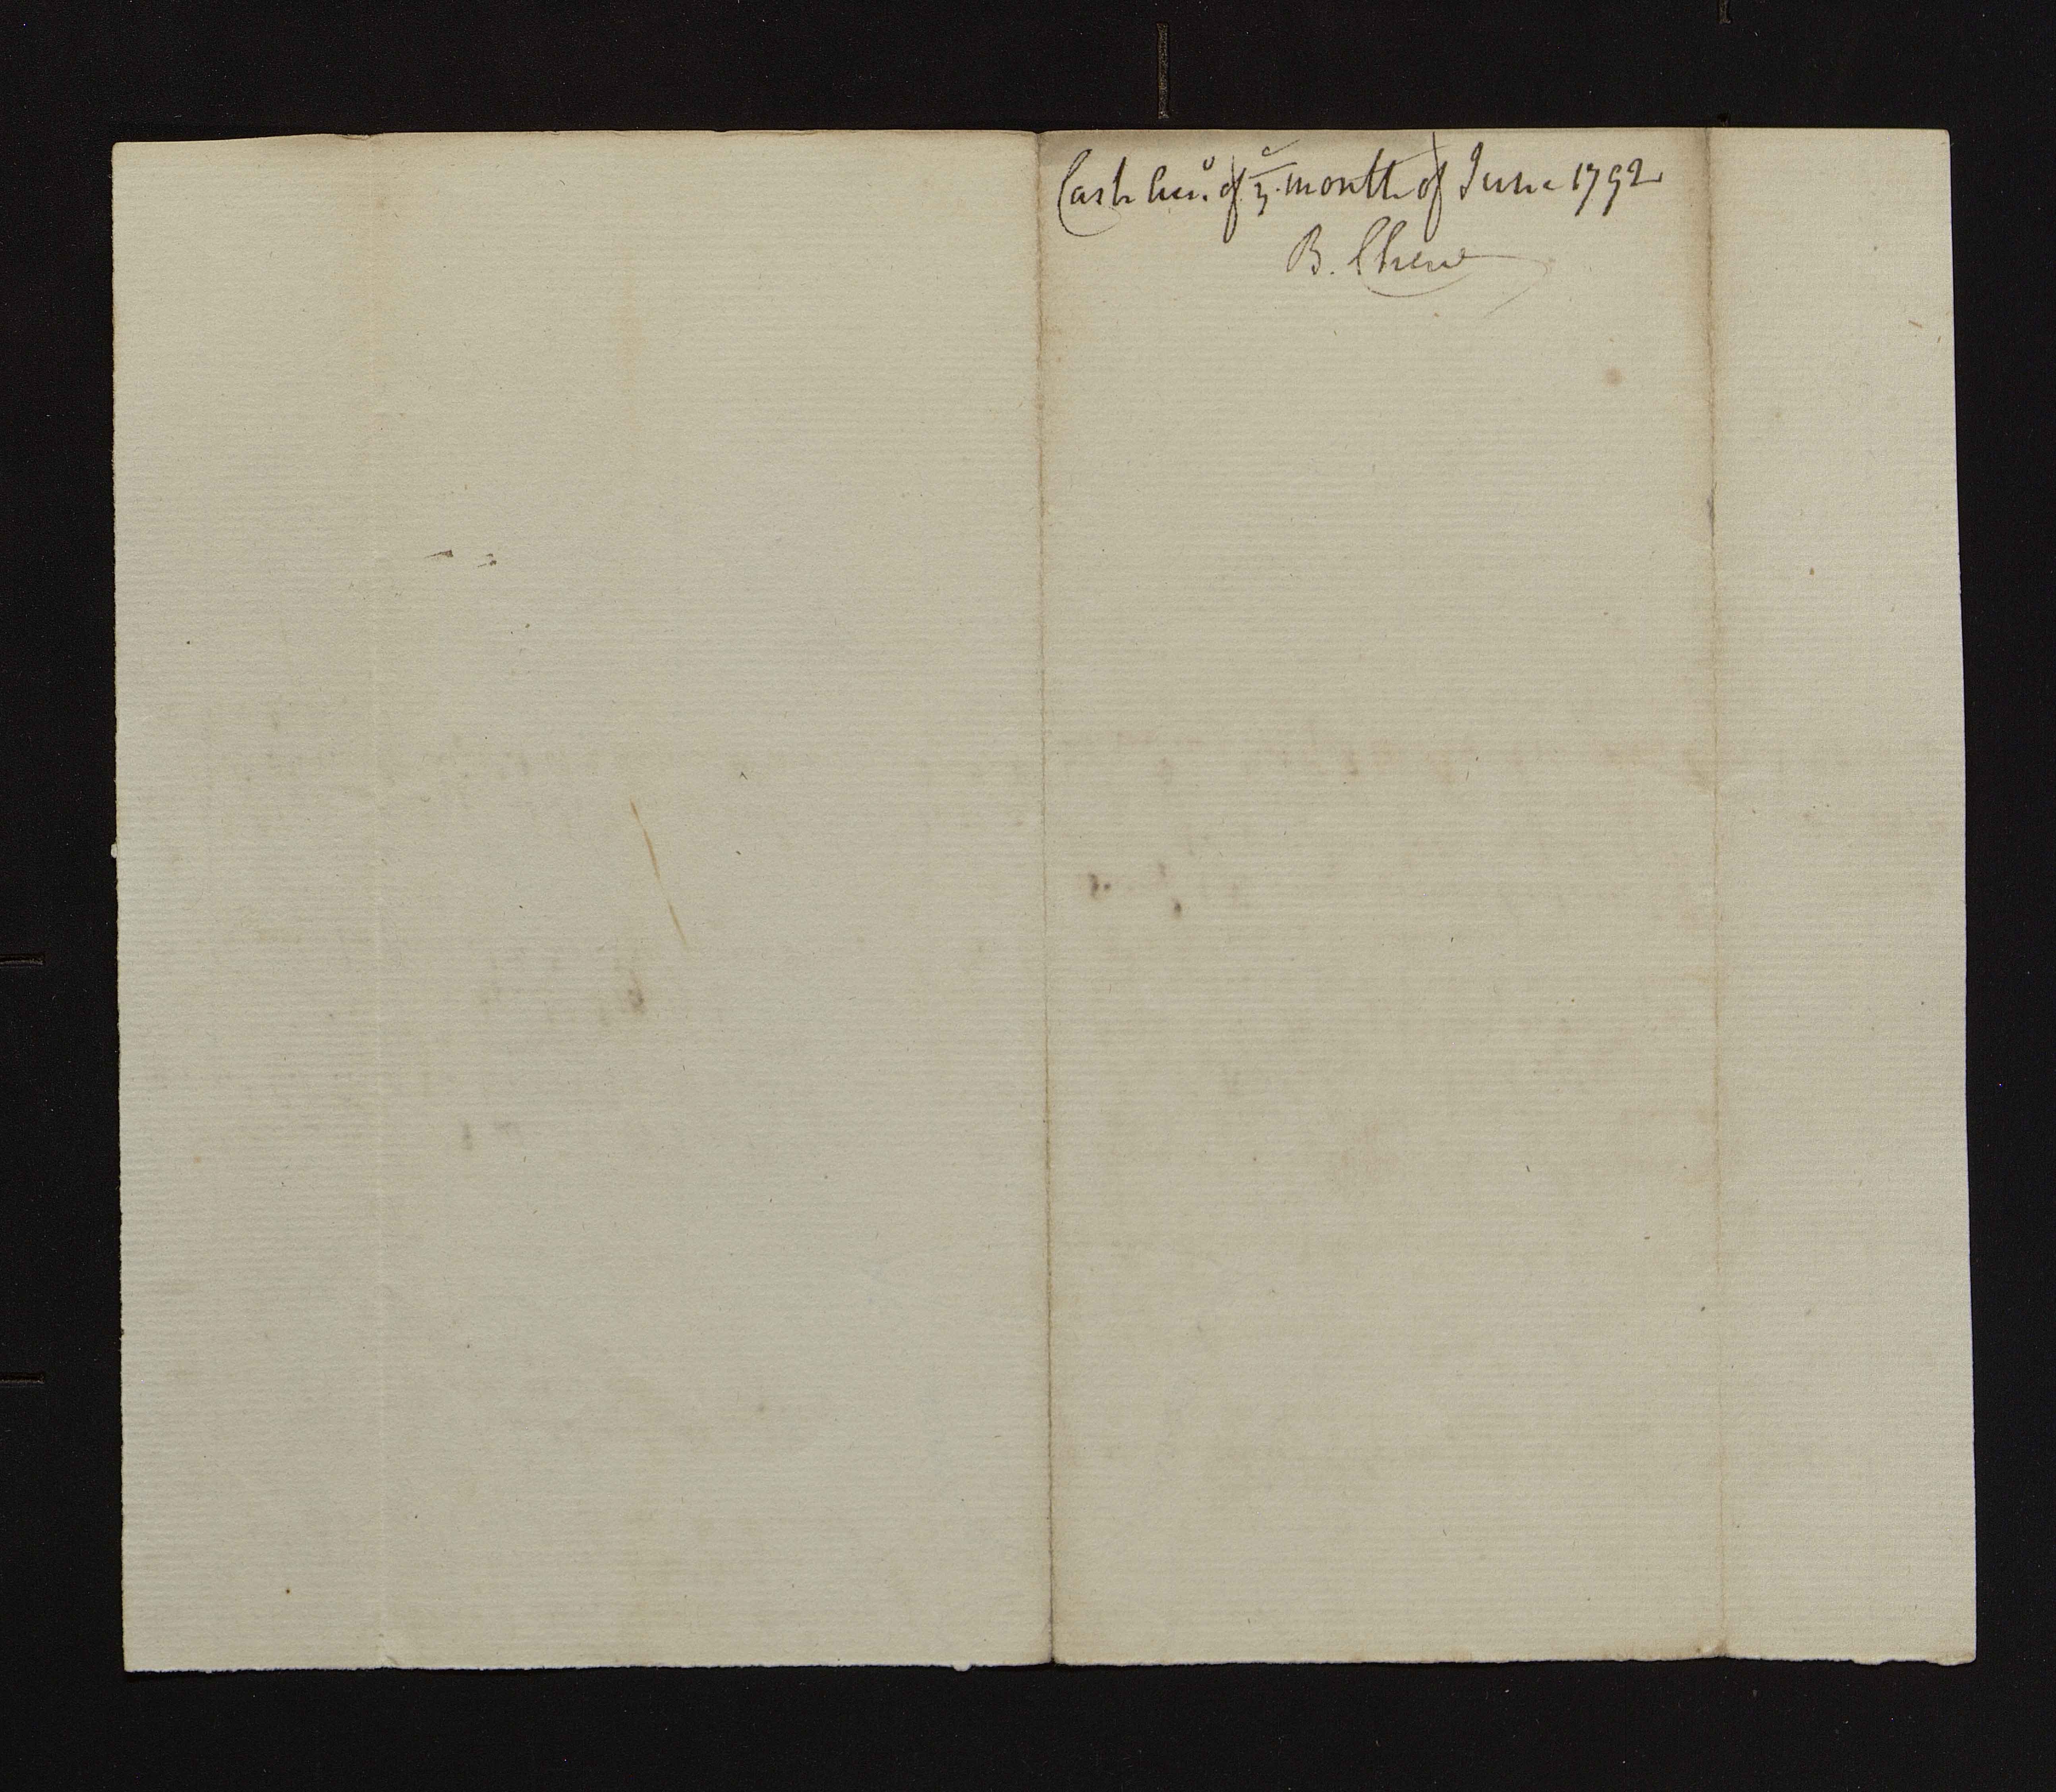 Cash Acc.ᵗ of yᵉ month of June 1792
B. Chew